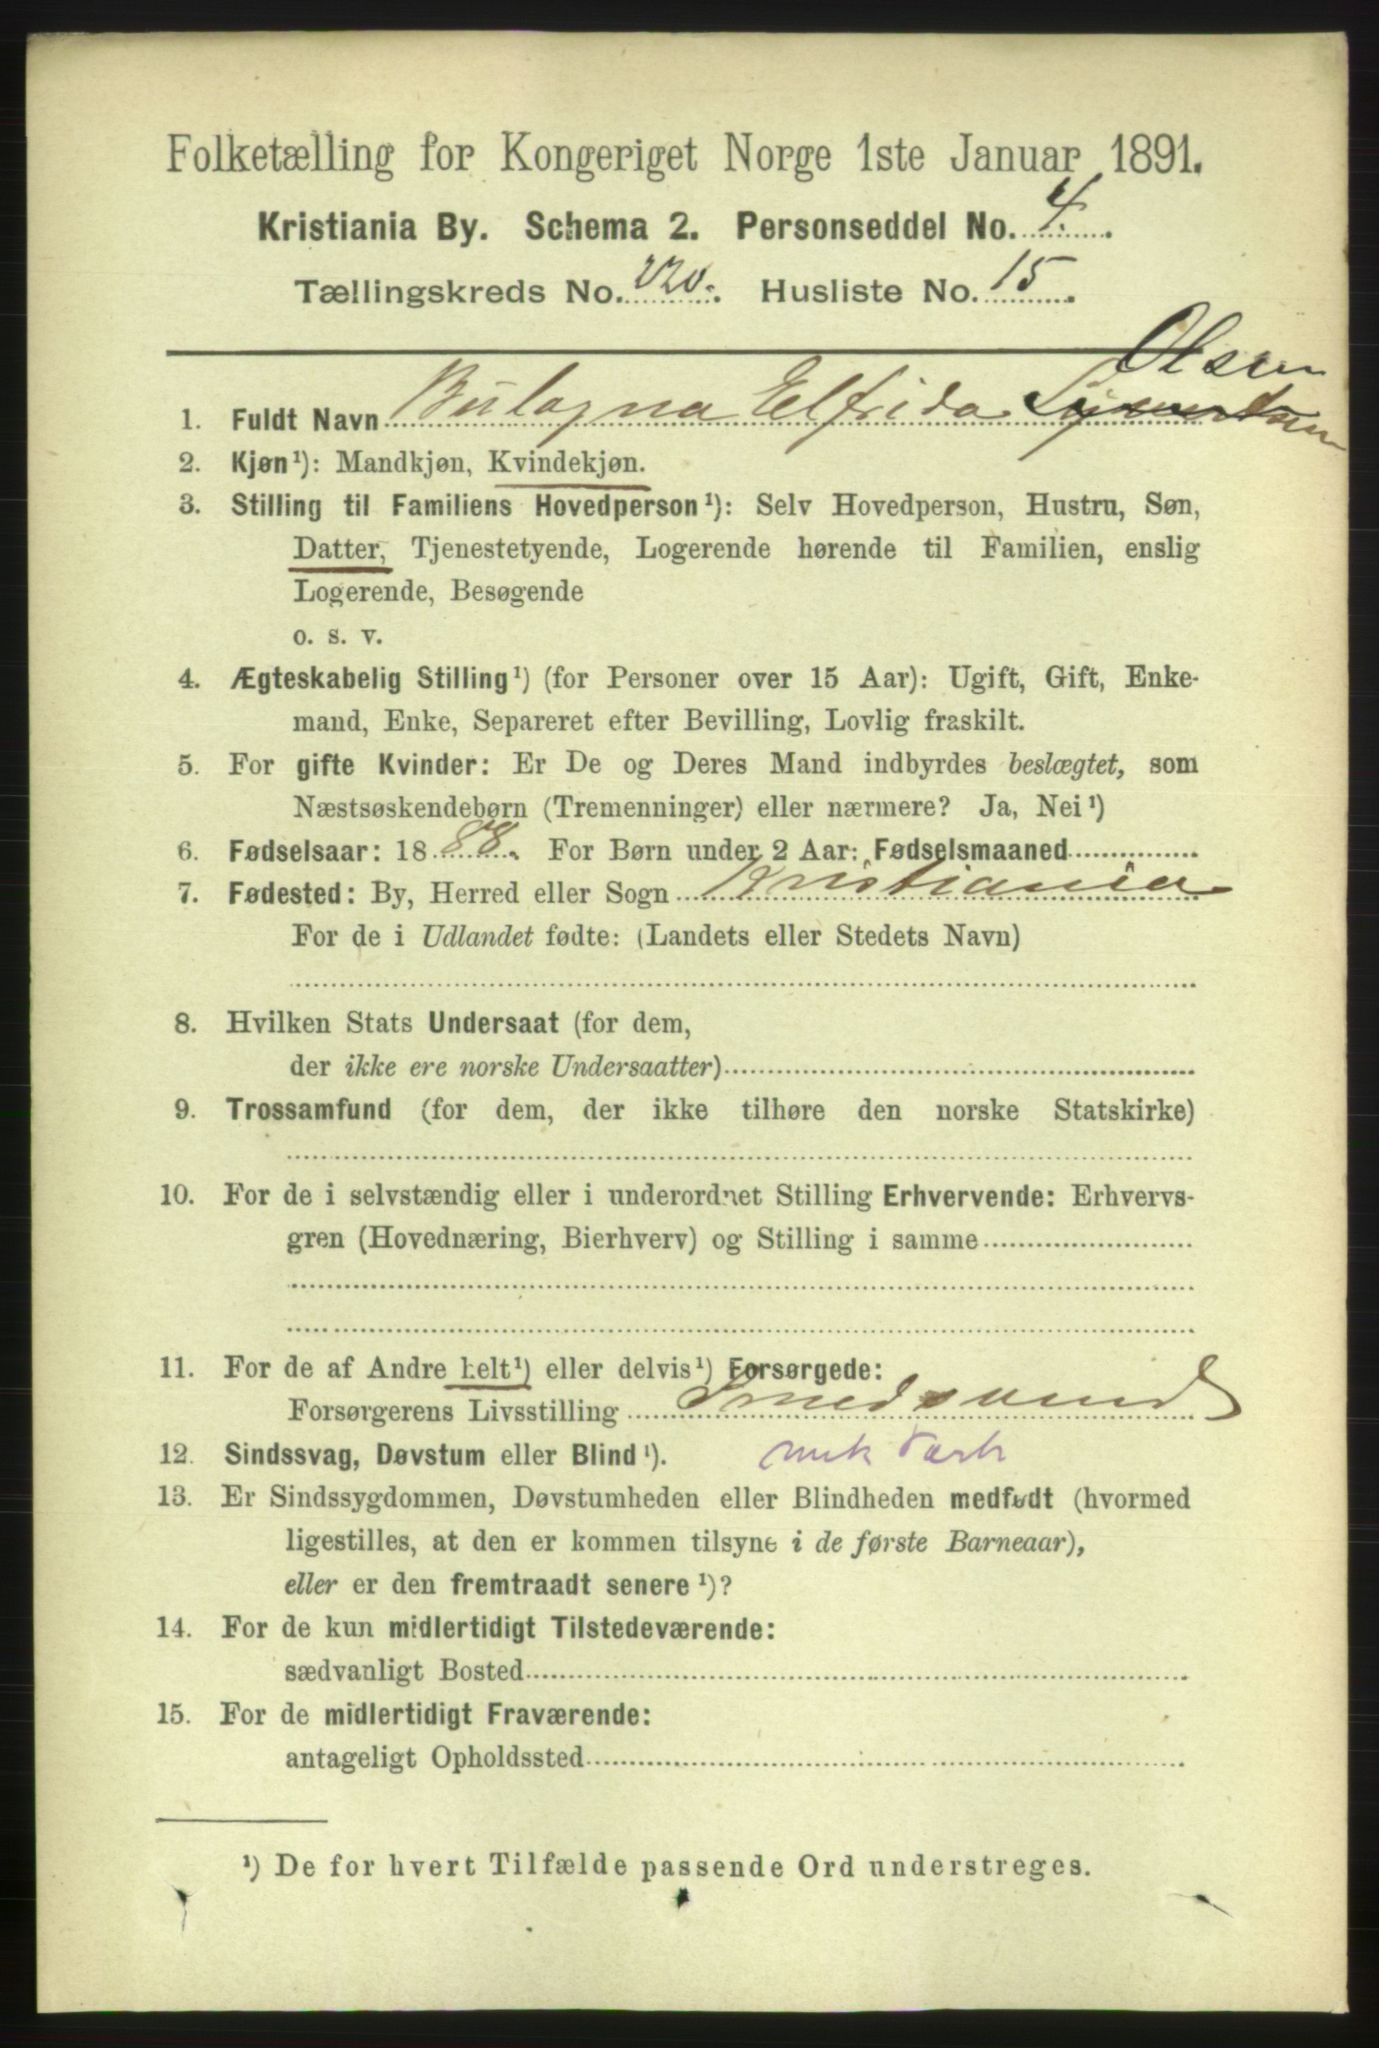 Folketælling for Kongeriget Norge 1ste Januar 1891.
Kristiania By. Schema 2. Personseddel No. 4.
Tællingskreds No. 220. Husliste No. 15.
Olsen
1. Fuldt Navn Elfrida Syvertsen
2. Kjøn¹): Mandkjøn, Kvindekjøn.
3. Stilling til Familiens Hovedperson¹): Selv Hovedperson, Hustru, Søn,
Datter, Tjenestetyende, Logerende hørende til Familien, enslig
Logerende, Besøgende
o. s. v.
4. Ægteskabelig Stilling¹) (for Personer over 15 Aar): Ugift, Gift, Enke-
mand, Enke, Separeret efter Bevilling, Lovlig fraskilt.
5. For gifte Kvinder: Er De og Deres Mand indbyrdes beslægtet, som
Næstsøskendebørn (Tremenninger) eller nærmere? Ja, Nei¹)
6. Fødselsaar: 1888. For Børn under 2 Aar: Fødselsmaaned
7. Fødested: By, Herred eller Sogn Kristiania
For de i Udlandet fødte: (Landets eller Stedets Navn)
8. Hvilken Stats Undersaat (for dem,
der ikke ere norske Undersaatter)
9. Trossamfund (for dem, der ikke tilhøre den norske Statskirke)
10. For de i selvstændig eller i underordnet Stilling Erhvervende: Erhvervs-
gren (Hovednæring, Bierhverv) og Stilling i samme
11. For de af Andre helt¹) eller delvis¹) Forsørgede:
Forsørgerens Livsstilling Smedsvend
mek Værk
12. Sindssvag, Døvstum eller Blind¹).
13. Er Sindssygdommen, Døvstumheden eller Blindheden medfødt (hvormed
ligestilles, at den er kommen tilsyne i de første Barneaar),
eller er den fremtraadt senere¹)?
14. For de kun midlertidigt Tilstedeværende:
sædvanligt Bosted
15. For de midlertidigt Fraværende:
antageligt Opholdssted
¹) De for hvert Tilfælde passende Ord understreges.